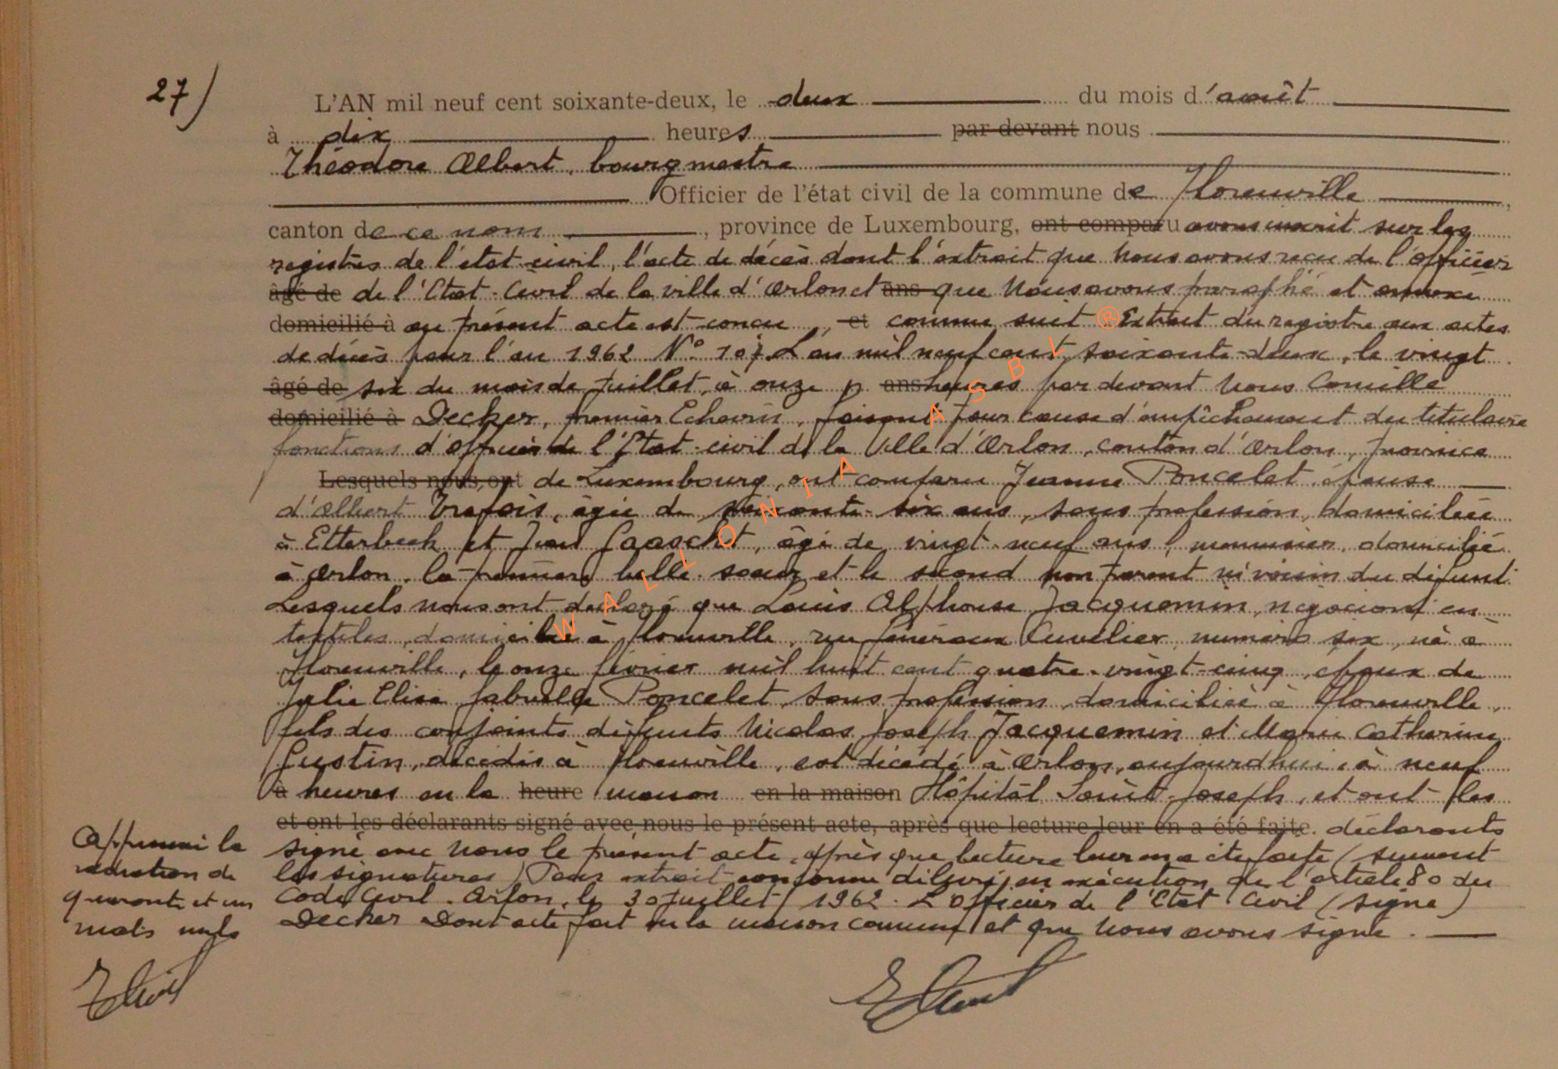 27)
L'AN mil neuf cent soixante-deux, le deux du mois d'août
à dix heures par devant nous
Théodore Albert, bourgmestre
Officier de l'état civil de la commune de Florenville,
canton de ce nom, province de Luxembourg, ont comparu avons inscrit sur les
registres de l'état civil, l'acte de décès dont l'extrait que nous avons reçu de l'officier
âgé de de l'Etat-Civil de la ville d'Arlon et ans que nous avons paraphé et annexé
domicilié à au présent acte est conçu, et comme suit Extrait du registre aux actes
de décès pour l'an 1962 N° 107. L'an mil neuf cent soixante-deux, le vingt
âgé de six du mois de juillet, à onze ans heures par devant nous Camille
domicilié à Decker, premier Echevin, faisant pour cause d'empêchement du titulaire
fonctions d'officier de l'Etat-civil de la Ville d'Arlon, canton d'Arlon, province
Lesquels nous ont de Luxembourg, ont comparu Jeanne Poncelet, épouse
d'Albert Trefois, âgée de soixante-six ans, sans profession, domiciliée
à Etterbeek et Jean Gaascht, âgé de vingt-neuf ans, menuisier, domicilié
à Arlon, la première belle-soeur et le second non parent ni voisin du défunt.
Lesquels nous ont déclaré que Louis Alphonse Jacquemin, négociant en
textiles, domicilié à Florenville, rue Généraux Cuvelier, numéro six, né à
Florenville, le onze février mil huit cent quatre-vingt-cinq, époux de
Julie Elise Gabrielle Poncelet, sans profession, domiciliée à Florenville,
fils des conjoints défunts Nicolas Joseph Jacquemin et Marie Catherine
Gustin, décédés à Florenville, est décédé à Arlon, aujourd'hui, à neuf
à heures en la heure maison en la maison Hôpital Saint Joseph, et ont les
et ont les déclarants signé avec nous le présent acte, après que lecture leur en a été faite. déclarants
signé avec nous le présent acte, après que lecture leur en a été faite (suivent
les signatures) Pour extrait conforme délivré en exécution de l'article 80 du
Code Civil. Arlon, le 30 juillet 1962. L'Officier de l'Etat Civil (signé)
Decker Dont acte fait en la maison commune et que nous avons signé.
Approuvé la
radiation de
quarante et un
mots nuls
WALLONIA ASBL ®